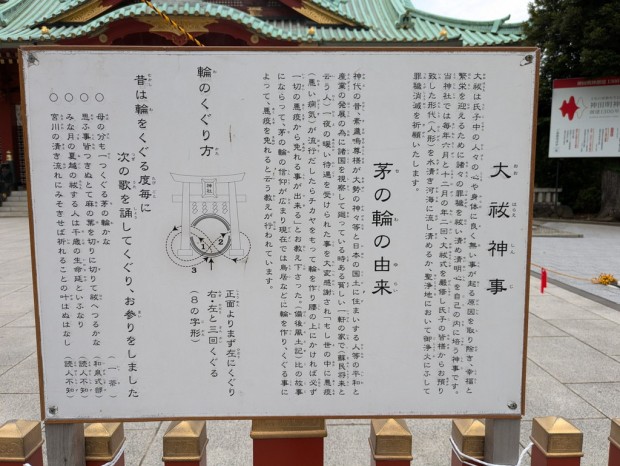 大祓神事
大祓は氏子中の人々の心や身体に良く無い事が起る原因を取り除き、幸福と
繁栄を迎えるために諸々の罪穢を祓い清め清明心を自己の内に培う神事です。
当神社では毎年六月と十二月の年二回、大祓式を厳修し氏子の皆様からお預り
致した形代(人形)を水清き河海に流し清めるか、聖浄地において御浄火にふして
罪穢消滅を祈願いたします。
茅の輪の由来
神代の昔素盞嗚尊様が大勢の神々等と日本の国土に住まいする人等の平和と
産業の発展の為に諸国を視察して廻っている時ある貧しい一軒の家で(蘇民将来と
云う人)一夜の暖い待遇を受けられた事を大変感謝され「もし世の中に悪疫
(悪い病気)が流行だしたらチカヤをもって輪を作り腰の上にかければ必ず
一切の悪疫から免れる事が出来る」とお教え下さった。(備後風土記)比の故事
にならって、茅の輪の信仰が広まり現在では鳥居などに輪を作り、くぐる事に
よって、悪疫を免れると云う教えが行われています。
輪のくぐり方
神社
1
2
3
正面よりまず左にくぐり
右・左と三回くぐる
(8の字形)
昔は輪をくぐる度毎に
次の歌を誦してくぐり、お参りをしました
○ 母の分も一つくぐる茅の輪かな (一茶)
○ 思ふ事皆つきねとて麻の葉を切りに切りて祓へつるかな (和泉式部)
○ みな月の夏越の祓する人は千歳の生命延といふなり (読人不知)
○ 宮川の清き流れにみそぎせば祈れることの叶はぬはなし (読人不知)